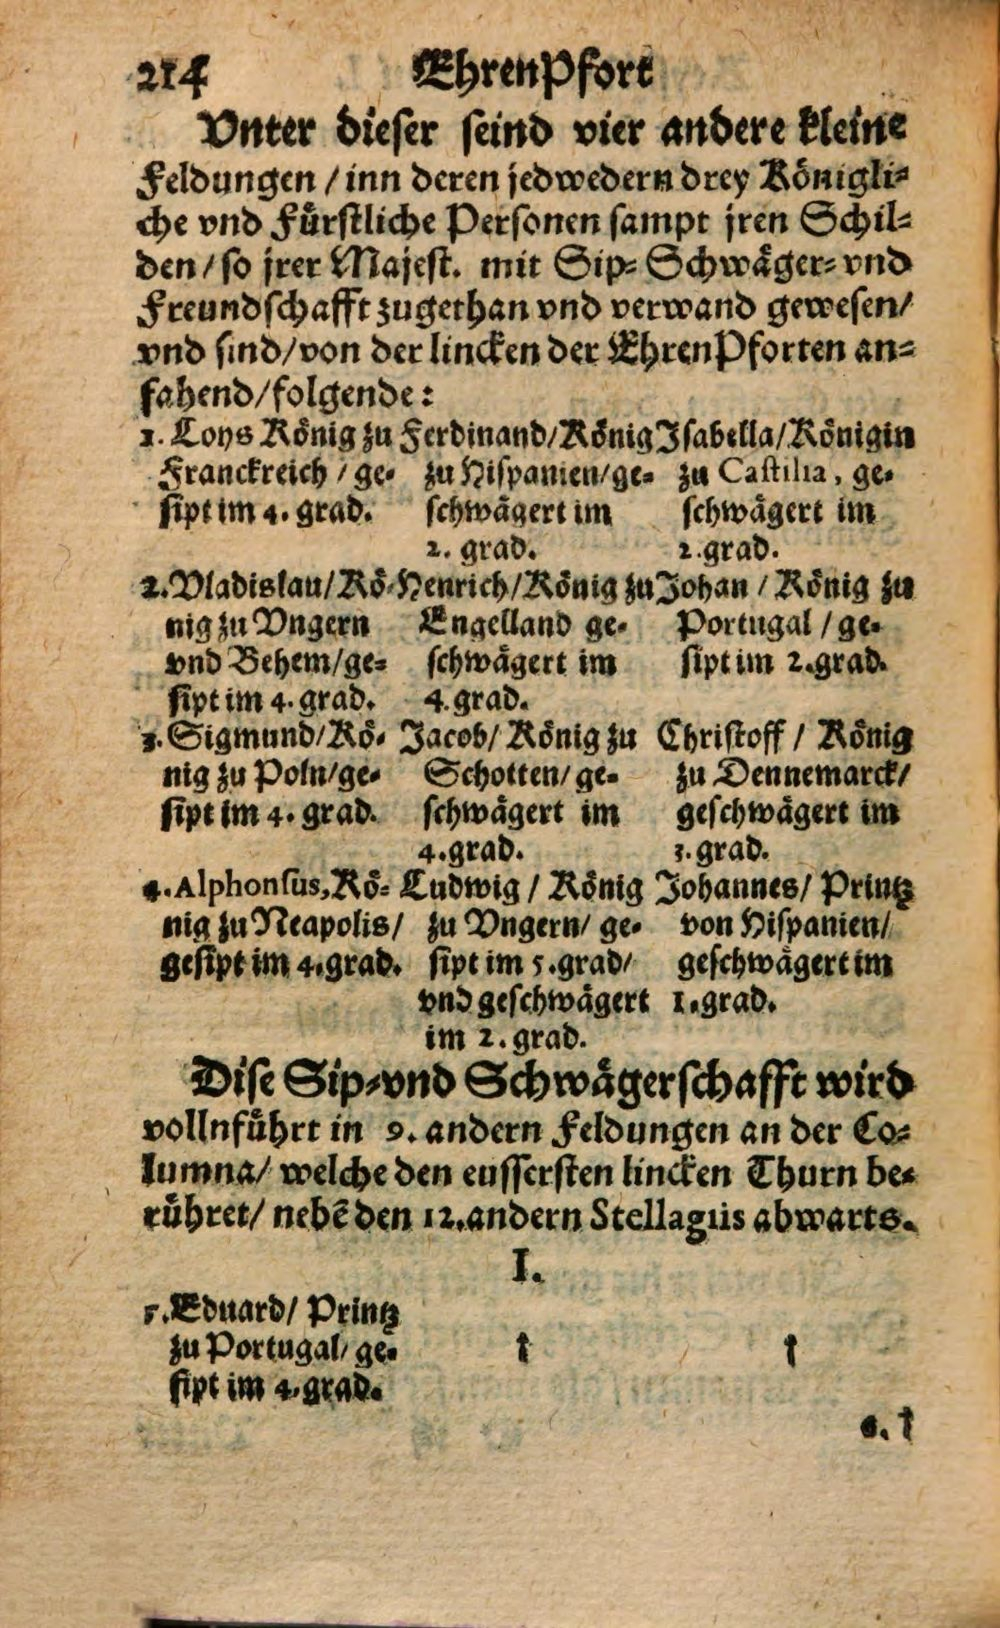 214 EhrenPfort
Vnter dieser seind vier andere kleine
Feldungen / inn deren jedwedern drey Königli-
che vnd Fürstliche Personen sampt jren Schil-
den / so jrer Majest. mit Sip- Schwäger- vnd
Freundschafft zugethan vnd verwand gewesen /
vnd sind / von der lincken der EhrenPforten an-
fahend / folgende:
1. Loys König zu Franckreich / ge-
sipt im 4. grad.
Ferdinand / König
zu Hispanien / ge-
schwägert im
2. grad.
Isabella / Königin
zu Castilia, ge-
schwägert im
2. grad.
2. Vladislau / Kö-
nig zu Vngern
vnd Behem / ge-
sipt im 4. grad.
Henrich / König zu
Engelland ge-
schwägert im
4. grad.
Johan / König zu
Portugal / ge-
sipt im 2. grad.
3. Sigmund / Kö-
nig zu Poln / ge-
sipt im 4. grad.
Jacob / König zu
Schotten / ge-
schwägert im
4. grad.
Christoff / König
zu Dennemarck /
geschwägert im
3. grad.
4. Alphonsus, Kö-
nig zu Neapolis /
gesipt im 4. grad.
Ludwig / König
zu Vngern / ge-
sipt im 5. grad /
vnd geschwägert
im 2. grad.
Johannes / Printz
von Hispanien /
geschwägert im
1. grad.
Dise Sip- vnd Schwägerschafft wird
vollnführt in 9. andern Feldungen an der Co-
lumna / welche den eussersten lincken Thurn be-
rühret / nebē den 12. andern Stellagiis abwarts.
I.
5. Eduard / Printz
zu Portugal / ge-
sipt im 4. grad.
† †
6. †